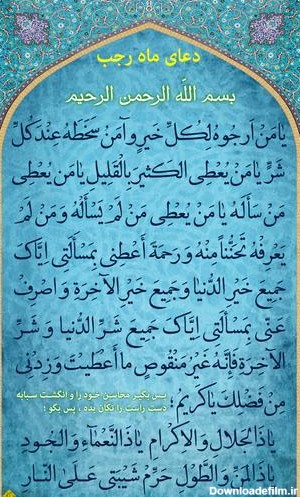 دعای ماه رجب
بسم الله الرحمن الرحیم
یا مَنْ اَرْجُوهُ لِکُلِّ خَیْرٍ وَ آمَنُ سَخَطَهُ عِنْدَ کُلِّ
شَرٍّ یا مَنْ یُعْطِی الْکَثیرَ بِالْقَلیلِ یا مَنْ یُعْطِی
مَنْ سَأَلَهُ یا مَنْ یُعْطِی مَنْ لَمْ یَسْأَلْهُ وَ مَنْ لَمْ
یَعْرِفْهُ تَحَنُّناً مِنْهُ وَ رَحْمَةً أَعْطِنِی بِمَسْأَلَتِی إِیَّاکَ
جَمِیعَ خَیْرِ الدُّنْیَا وَ جَمِیعَ خَیْرِ الْآخِرَةِ وَ اصْرِفْ
عَنِّی بِمَسْأَلَتِی إِیَّاکَ جَمِیعَ شَرِّ الدُّنْیَا وَ شَرِّ
الْآخِرَةِ فَإِنَّهُ غَیْرُ مَنْقُوصٍ مَا أَعْطَیْتَ وَ زِدْنِی
مِنْ فَضْلِکَ یَا کَرِیمُ؛
پس بگیر محاسن خود را و انگشت سبابه
دست راست را تکان بده ، پس بگو :
یَا ذَا الْجَلَالِ وَ الْإِکْرَامِ یَا ذَا النَّعْمَاءِ وَ الْجُودِ
یَا ذَا الْمَنِّ وَ الطَّوْلِ حَرِّمْ شَیْبَتِی عَلَى النَّارِ
Downloadefilm.ir